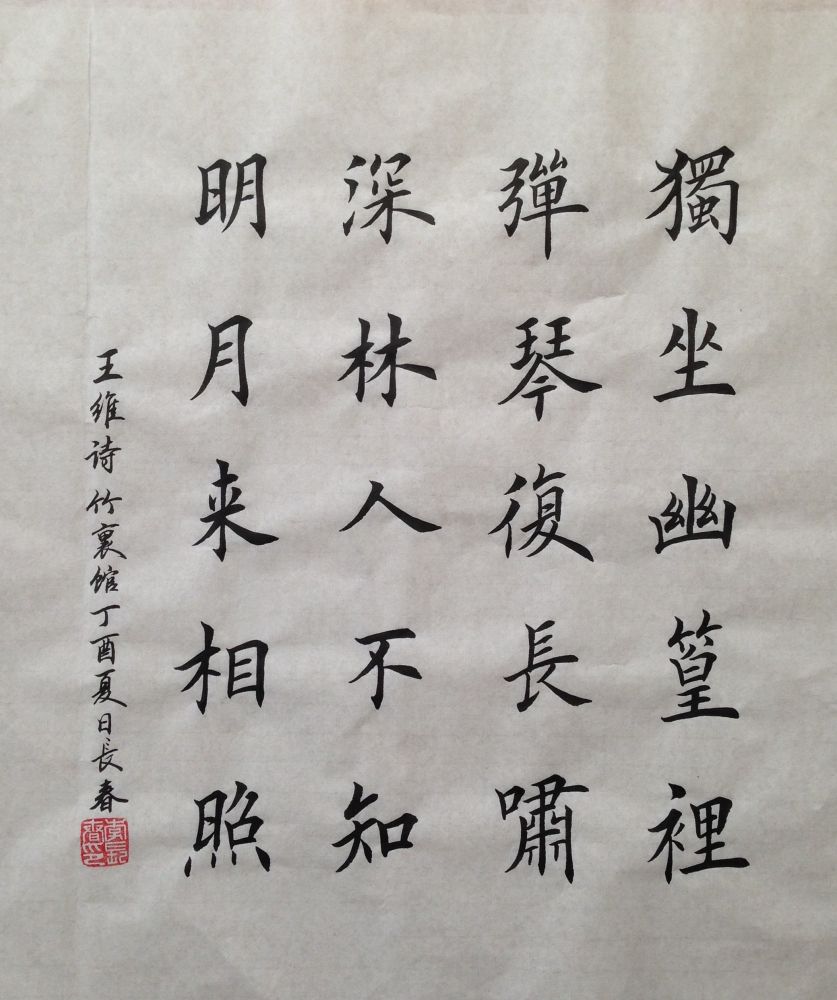 獨坐幽篁裡
彈琴復長嘯
深林人不知
明月来相照
王維诗竹裏館丁酉夏日長春